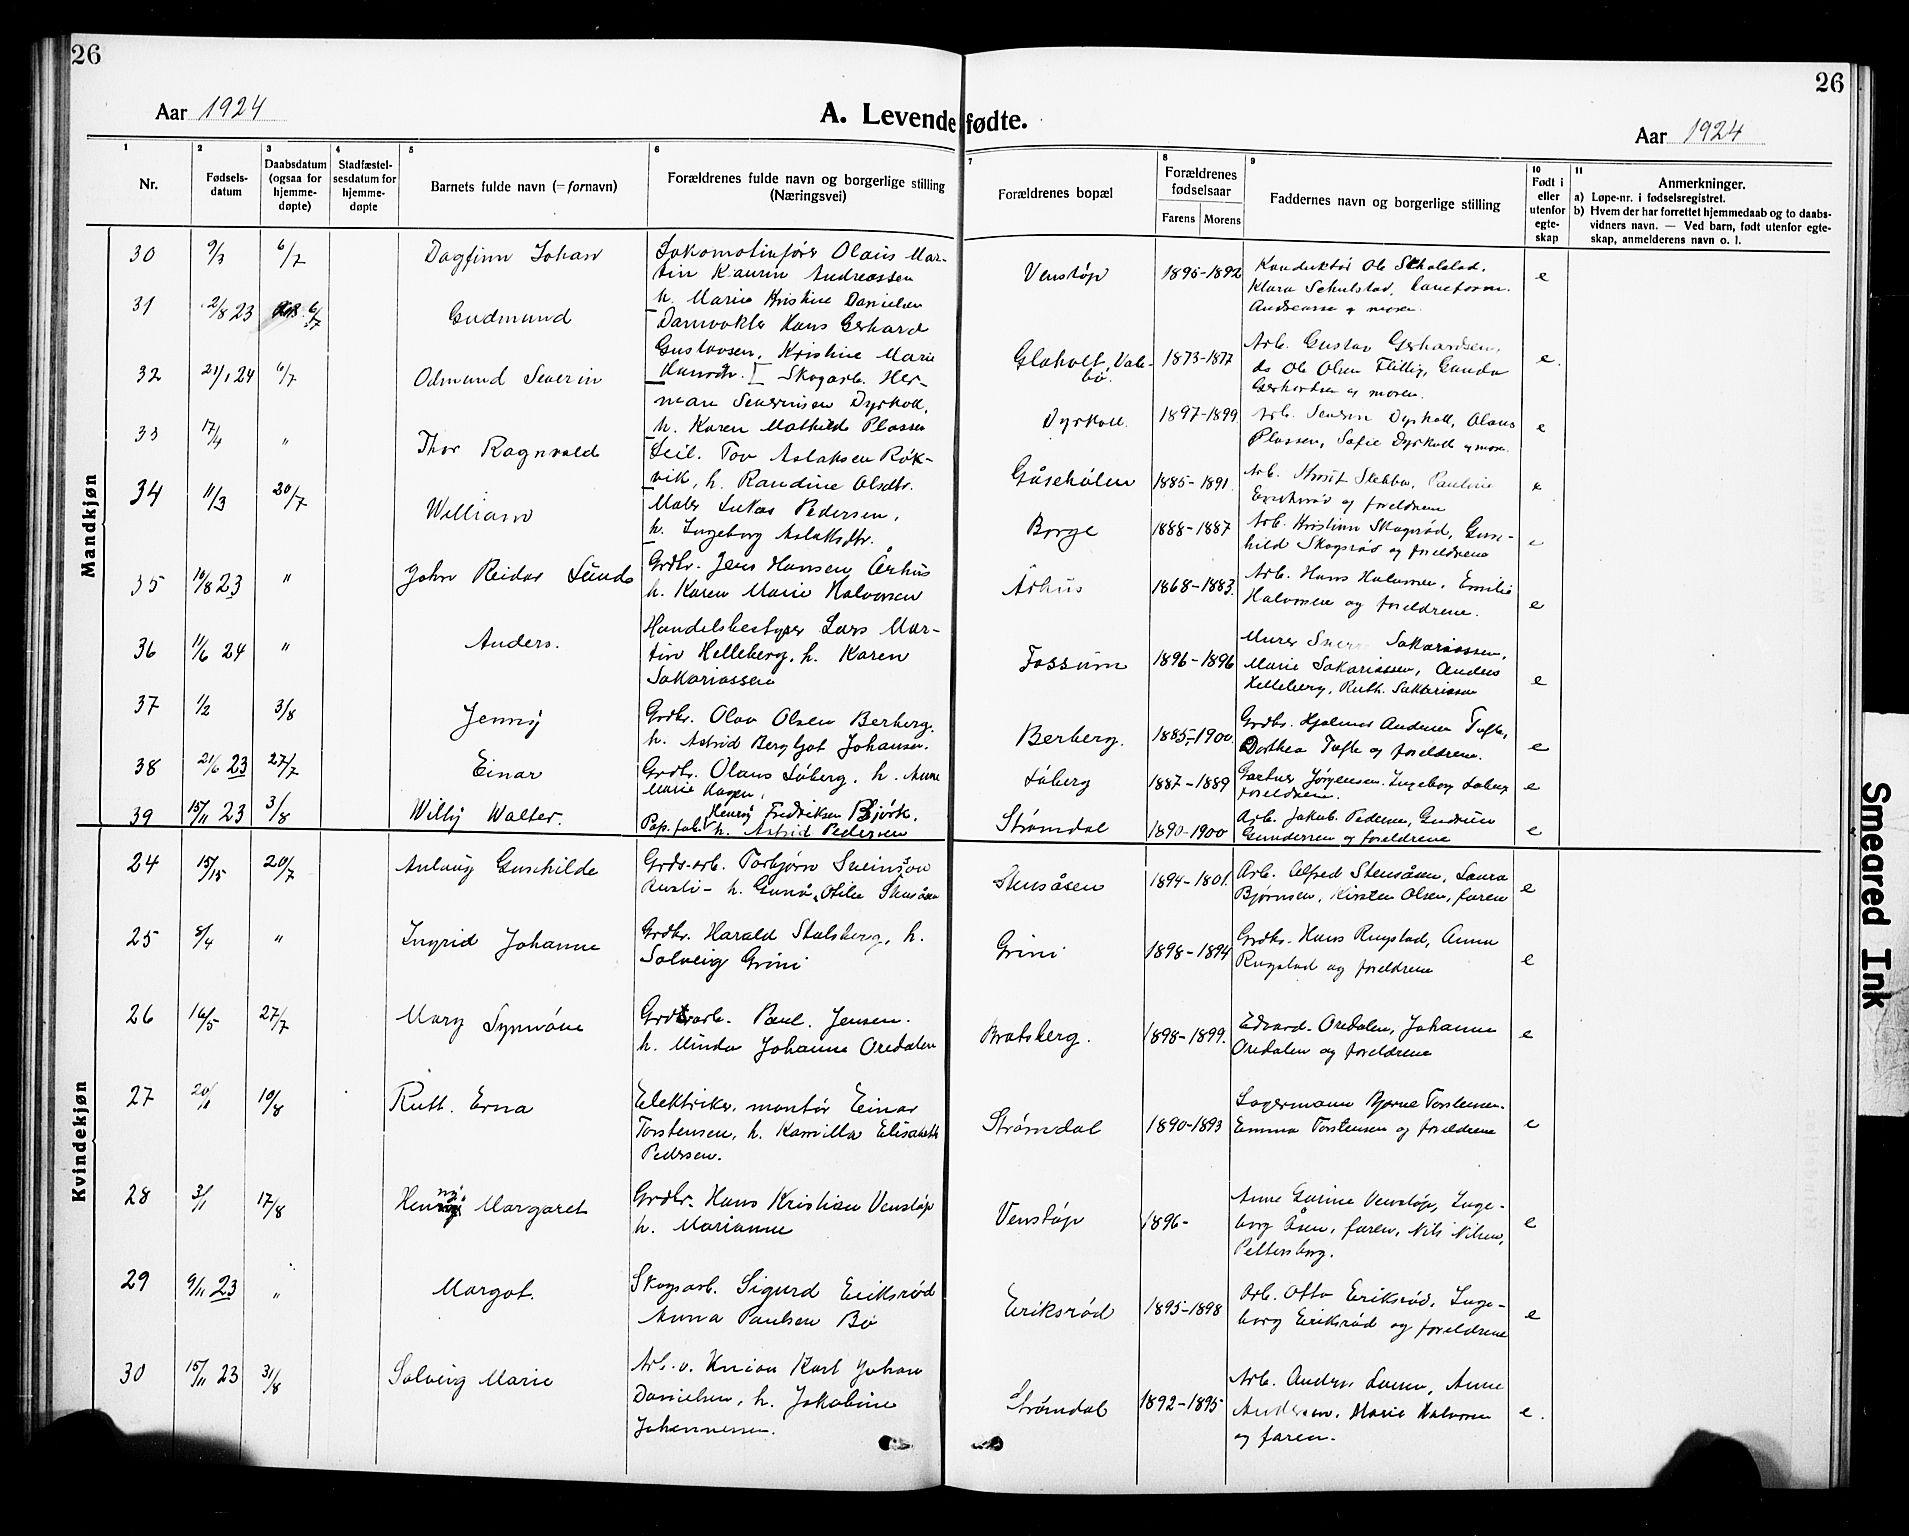 26
26
Aar 1924
A. Levende fødte.
Aar 1924
1
2
3
4
5
6
7
8
9
10
11
Nr.
Fødsels-
datum
Daabsdatum
(ogsaa for
hjemme-
døpte)
Stadfæstel-
sesdatum for
hjemme-
døpte
Barnets fulde navn (= fornavn)
Forældrenes fulde navn og borgerlige stilling
(Næringsvei)
Forældrenes bopæl
Forældrenes
fødselsaar
Farens Morens
Faddernes navn og borgerlige stilling
Født i
eller
utenfor
egte-
skap
Anmerkninger.
a) Løpe-nr. i fødselsregistret.
b) Hvem der har forrettet hjemmedaab og to daabs-
vidners navn. — Ved barn, født utenfor egte-
skap, anmelderens navn o. l.
Mandkjøn
30 9/3 6/7 Dagfinn Johan
Lokomotivfører Olaus Mar-
tin Kaurin Andreassen
h. Marie Kristine Danielsen
Venstøp 1895-1892
Konduktør Ole Skolstad,
Klara Schulstad,
Andreassen og moren
e
31 2/8 23 6/7 Gudmund
Damvokter Hans Gerhard
Gustavsen, Kristine Marie
Hansdtr.
Glaholt, Vale-
bø. 1873-1877
Arb. Gustav Gerhardsen,
do Ole Olsen Flittig, Gunda
Gerhardsen og moren.
e.
32 21/1 24 6/7 Odmund Severin
Skogarb. Her-
man Severinsen Dyrkoll,
h. Karen Mathilde Plassen
Dyrkoll. 1897-1899
Arb. Severin Dyrkoll, Olaus
Plassen, Sofie Dyrkoll og moren.
e
33 17/4 " Thor Ragnvald
Tov Aslaksen Røk-
vik, h. Randine Olsdtr.
Gåsehølen 1885-1891.
Arb. Stebba, Pauline
Eriksrød og foreldrene
e
34 11/3 20/7 William
Maler Lukas Pedersen,
h. Ingeborg Aslaksdtr.
Borge 1888-1887
Arb. Kristian Skogsrød, Gun-
hild Skogsrød og foreldrene
e
35 16/8 23 " John Reidar Sundo
Grdbr. Jens Hansen Århus
h. Karen Marie Halvorsen
Århus 1868-1883.
Arb. Hans Halvorsen, Emilie
Halvorsen og foreldrene.
e
36 11/6 24 " Anders.
Handelsbestyrer Lars Mar-
tin Helleberg, h. Karen
Sakariassen
Fossum 1896-1896
Murer Sakariassen,
Marie Sakariassen, Anders
Helleberg, Ruth. Sakariassen
e
37 1/2 3/8 Jenny
Grdbr. Olav Olsen Berberg.
h. Astrid Bergljot Johansen.
Berberg. 1885-1900.
Grdbr. Hjalmar Andersen Tufte,
Dorthea Tufte og foreldrene.
e
38 21/6 23 27/7 Einar
Grdbr. Olaus Løberg, h. Anne
Marie Hagen,
Løberg 1887-1889
Gartner Jørgensen. Ingeborg Løberg
foreldrene.
e
39 15/11 23 3/8 Willy Walter.
Pap. fab. Henry Fredriksen Bjørk.
h. Astrid Pedersen
Strømdal 1890-1900
Arb. Jakob. Pedersen, Gudrun
Gundersen og foreldrene
e
Kvindekjøn
24 15/15 20/7 Anlaug Gunhilde
Grds-arb. Torbjørn Sveinson
h. Gunda Otilie Stensåsen
Stensåsen 1894-1801.
Arb. Alfred Stensåsen, Laura
Bjørnsen, Kirsten Olsen, faren
e
25 8/4 " Ingrid Johanne
Grdbr. Harald Stulsberg, h.
Solveig Grini
Grini 1898-1894
Grdbr. Hans Rugstad, Anna
Rugstad og foreldrene
e
26 16/5 27/7 Mary Synnøve
Grdsarb. Paul. Jensen.
h. Minda Johanne Oredalen
Bratsberg. 1898-1899.
Edvard. Oredalen, Johanne
Oredalen og foreldrene
e
27 20/11 10/8 Ruth. Erna
Elektriker, montør Einar
Torstensen, h. Kamilla Elisabeth
Pedersen.
Strømdal 1890-1893
Lagermann Bjarne Torstensen.
Emma Torstensen og foreldrene
e
28 3/1 17/8 Henny Margaret
Grdbr. Hans Kristian Venstøp
h. Marianne
Venstøp 1896-
Anne Gurine Venstøp, Inge-
borg Åsen, faren, Nils Nilsen,
Pettersborg.
e
29 9/11 23 " Margot.
Skogsarb. Sigurd Eriksrød
Anna Paulsen Bø
Eriksrød 1895-1898
Arb. Otto Eriksrød, Inge-
borg Eriksrød og foreldrene
e
30 15/11 23 31/8 Solveig Marie
Arb. v. Union Karl Johan
Danielsen, h. Jakobine
Johannessen.
Strømdal 1892-1895
Arb. Anders Larsen, Anne
Andersen, Marie Halvorsen
og faren.
e.
Smeared Ink